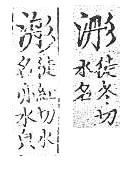 浵
徒冬切
水名
浵
徒紅切水
名水皃